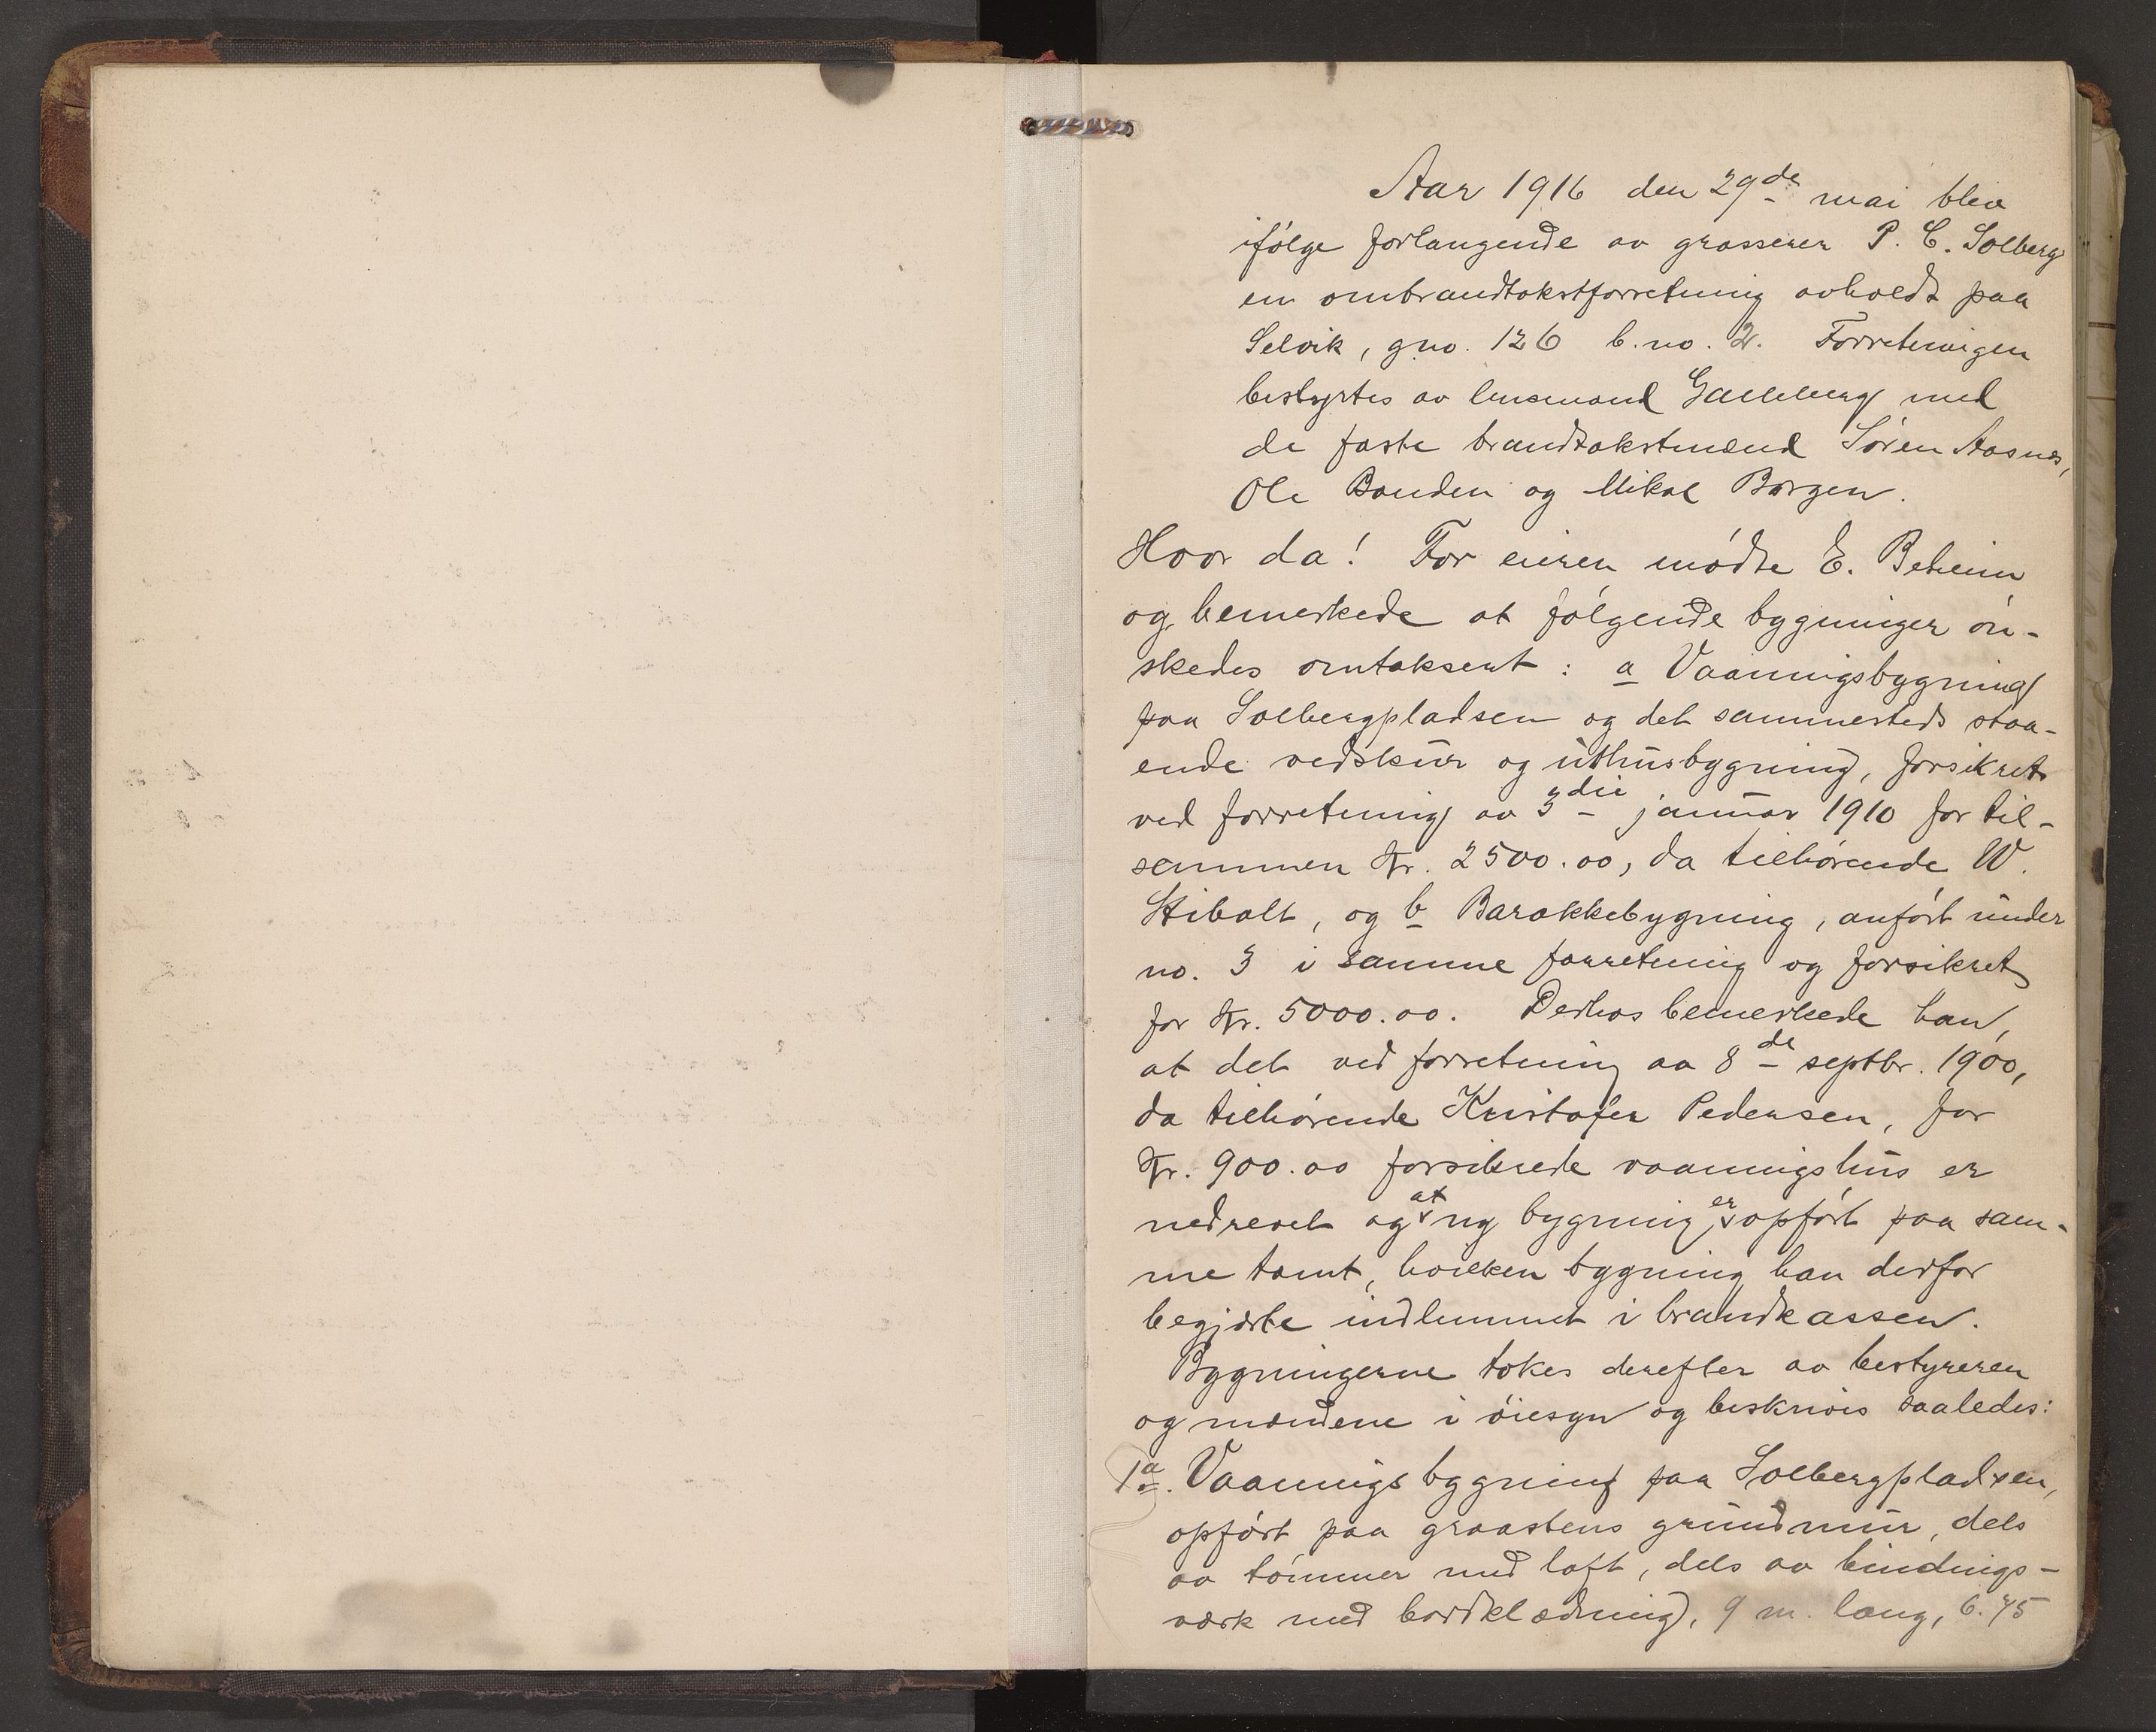 Aar 1916 den 29de mai blev
ifølge forlangende av grosserer P. C. Solberg
en ombrandtakstforretning avholdt paa
Selvik, g.no. 126 b.no. 2. Forretningen
bestyrtes av lensmand Galleberg med
de faste brandtakstmænd Søren Aasnes,
Ole Bonden og Mikal Borgen.
Hvor da! For eieren mødte E. Beheim
og bemerkede at følgende bygninger øn-
skedes omtaksert: a Vaaningsbygning
paa Solbergpladsen og det sammesteds staa-
ende vedskur og uthusbygning, forsikret
ved forretning av 3die januar 1910 for til-
sammen Kr. 2500.00, da tilhørende W.
Stibolt, og b Barakkebygning, anført under
no. 3 i samme forretning og forsikret
for Kr. 5000.00. Derhos bemerkede han,
at det ved forretning av 8de septbr. 1900,
da tilhørende Kristofer Pedersen, for
Kr. 900.00 forsikrede vaaningshus er
nedrevet og at ny bygning er opført paa sam-
me tomt, hvilken bygning han derfor
begjærte indlemmet i brandkassen.
Bygningerne tokes derefter av bestyreren
og mændene i øiesyn og beskrives saaledes:
1a. Vaaningsbygning paa Solbergpladsen,
opført paa graastens grundmur, dels
av tømmer med loft, dels av bindings-
værk med bordklædning, 9 m. lang, 6.75